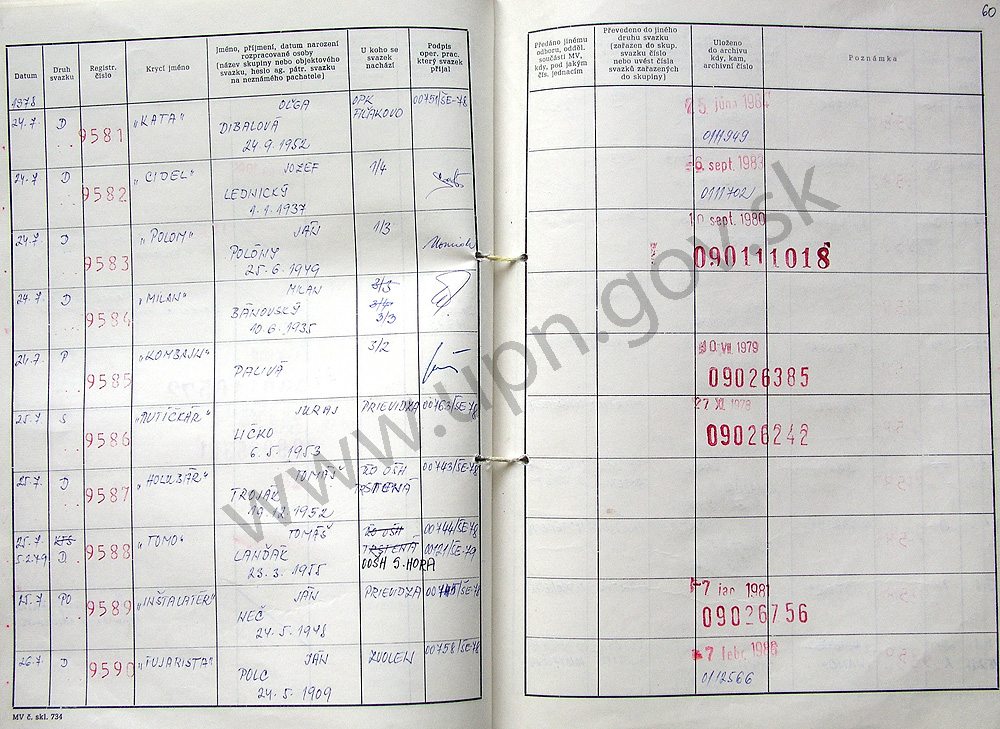 60
Datum
Druh svazku
Registr. číslo
Krycí jméno
Jméno, příjmení, datum narození
rozpracované osoby
(název skupiny nebo objektového
svazku, heslo ag. pátr. svazku
na neznámého pachatele)
U koho se
svazek
nachází
Podpis
oper. prac.
který svazek
přijal
Předáno jinému
odboru, odděl.
součásti MV,
kdy, pod jakým
čís. jednacím
Převedeno do jiného
druhu svazku
(zařazen do skup.
svazku číslo
nebo uvést čísla
svazků zařazených
do skupiny)
Uloženo
do archivu
kdy, kam,
archivní číslo
Poznámka
1978
24.7. D 9581 "KATA" OĽGA
DIBALOVÁ
24.9.1952
OPK
FIĽAKOVO
00751/ŠE-78
5. júna 1984
0111949
24.7 D 9582 "CIDEL" JOZEF
LEDNICKÝ
1.1.1937
1/4
6. sept. 1983
0111702
24.7. D 9583 "POLOM" JÁN
POLÓNY
25.6.1949
1/3
10 sept. 1980
090111018
24.7. D 9584 "MILAN" MILAN
BÁNOVSKÝ
10.6.1935
3/3
24.7. P 9585 "KOMBAJN"
PALIVÁ
3/2
10 VII 1979
09026385
25.7. S 9586 JURAJ
LIČKO
6.5.1953
PRIEVIDZA 00763/ŠE-78
27 XI 1978
09026242
25.7. D 9587 "HOLUBÁR" TOMÁŠ
TROJÁK
19.12.1952
ŽO OŠH
TRSTENÁ
00743/ŠE-78
25.7. 9588 "TOMO" TOMÁŠ
5.2.79. D
LANĎÁK
23.3.1955
ŽO OŠH
TRSTENÁ
OOŠH S.HORA
00744/ŠE-78
00121/ŠE-79
25.7. PO 9589 "INŠTALATER" JÁN
NEČ
24.5.1948
PRIEVIDZA 00745/ŠE-78
7 jan. 1981
09026756
26.7. D 9590 "TUJARISTA" JÁN
POLC
24.5.1909
ZVOLEN 00758/ŠE-78
7 febr. 1986
0112566
MV č. skl. 734
www.upn.gov.sk